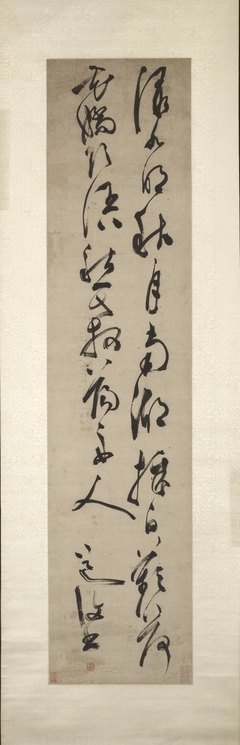 淥水明秋月南湖採白蘋荷
花嬌欲語愁殺蕩舟人 道復書